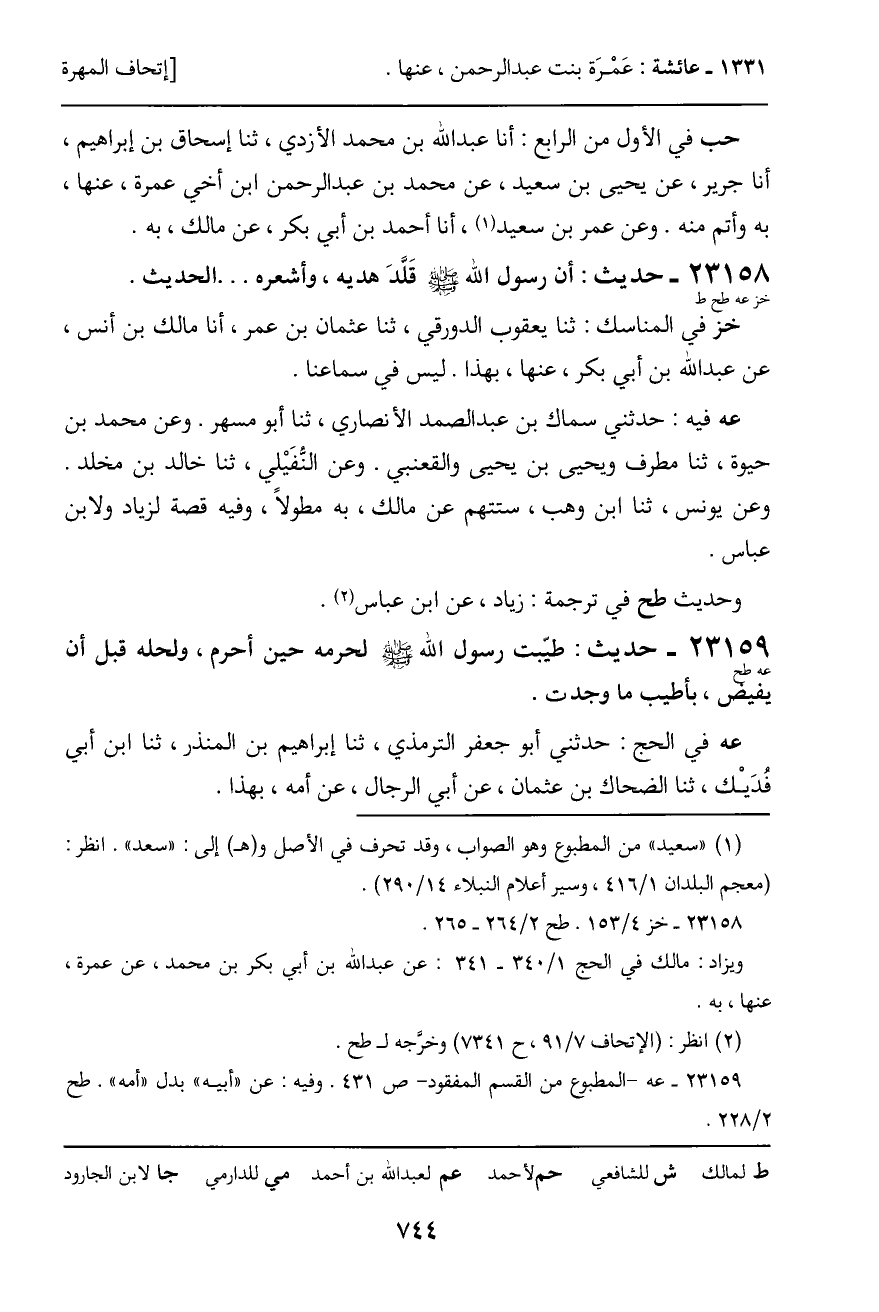 ١٣٣١ ـ عائشة : عَمْـرَة بنت عبدالرحمن ، عنها . [إتحاف المهرة
حب في الأول من الرابع : أنا عبدالله بن محمد الأزدي ، ثنا إسحاق بن إبراهيم ،
أنا جرير ، عن يحيى بن سعيد ، عن محمد بن عبدالرحمن ابن أخي عمرة ، عنها ،
به وأتم منه . وعن عمر بن سعيد(١) ، أنا أحمد بن أبي بكر ، عن مالك ، به .
٢٣١٥٨ ـ حديث : أن رسول الله ﷺ قَلَّدَ هديه ، وأشعره . . .الحديث .
خز عه طح ط
خز في المناسك : ثنا يعقوب الدورقي ، ثنا عثمان بن عمر ، أنا مالك بن أنس ،
عن عبدالله بن أبي بكر ، عنها ، بهذا . ليس في سماعنا .
عه فيه : حدثني سماك بن عبدالصمد الأنصاري ، ثنا أبو مسهر . وعن محمد بن
حيوة ، ثنا مطرف ويحيى بن يحيى والقعنبي . وعن النُّفَيْلي ، ثنا خالد بن مخلد .
وعن يونس ، ثنا ابن وهب ، ستتهم عن مالك ، به مطولاً ، وفيه قصة لزياد ولابن
عباس .
وحديث طح في ترجمة : زياد ، عن ابن عباس(٢) .
٢٣١٥٩ ـ حديث : طيّبت رسول الله ﷺ لحرمه حين أحرم ، ولحله قبل أن
عه طح
يفيض ، بأطيب ما وجدت .
عه في الحج : حدثني أبو جعفر الترمذي ، ثنا إبراهيم بن المنذر ، ثنا ابن أبي
فُدَيْـك ، ثنا الضحاك بن عثمان ، عن أبي الرجال ، عن أمه ، بهذا .
(١) «سعيد» من المطبوع وهو الصواب ، وقد تحرف في الأصل و(هـ) إلى : «سعد» . انظر :
(معجم البلدان ٤١٦/١ ، وسير أعلام النبلاء ٢٩٠/١٤) .
٢٣١٥٨ ـ خز ١٥٣/٤ . طح ٢٦٤/٢ ـ ٢٦٥ .
ويزاد : مالك في الحج ٣٤٠/١ ـ ٣٤١ : عن عبدالله بن أبي بكر بن محمد ، عن عمرة ،
عنها ، به .
(٢) انظر : (الإتحاف ٩١/٧ ، ح ٧٣٤١) وخرَّجه لـ طح .
٢٣١٥٩ ـ عه -المطبوع من القسم المفقود- ص ٤٣١ . وفيه : عن «أبيـه» بدل «أمه» . طح
٢٢٨/٢ .
ط لمالك ش للشافعي حم لأحمد عم لعبدالله بن أحمد مي للدارمي جا لابن الجارود
٧٤٤